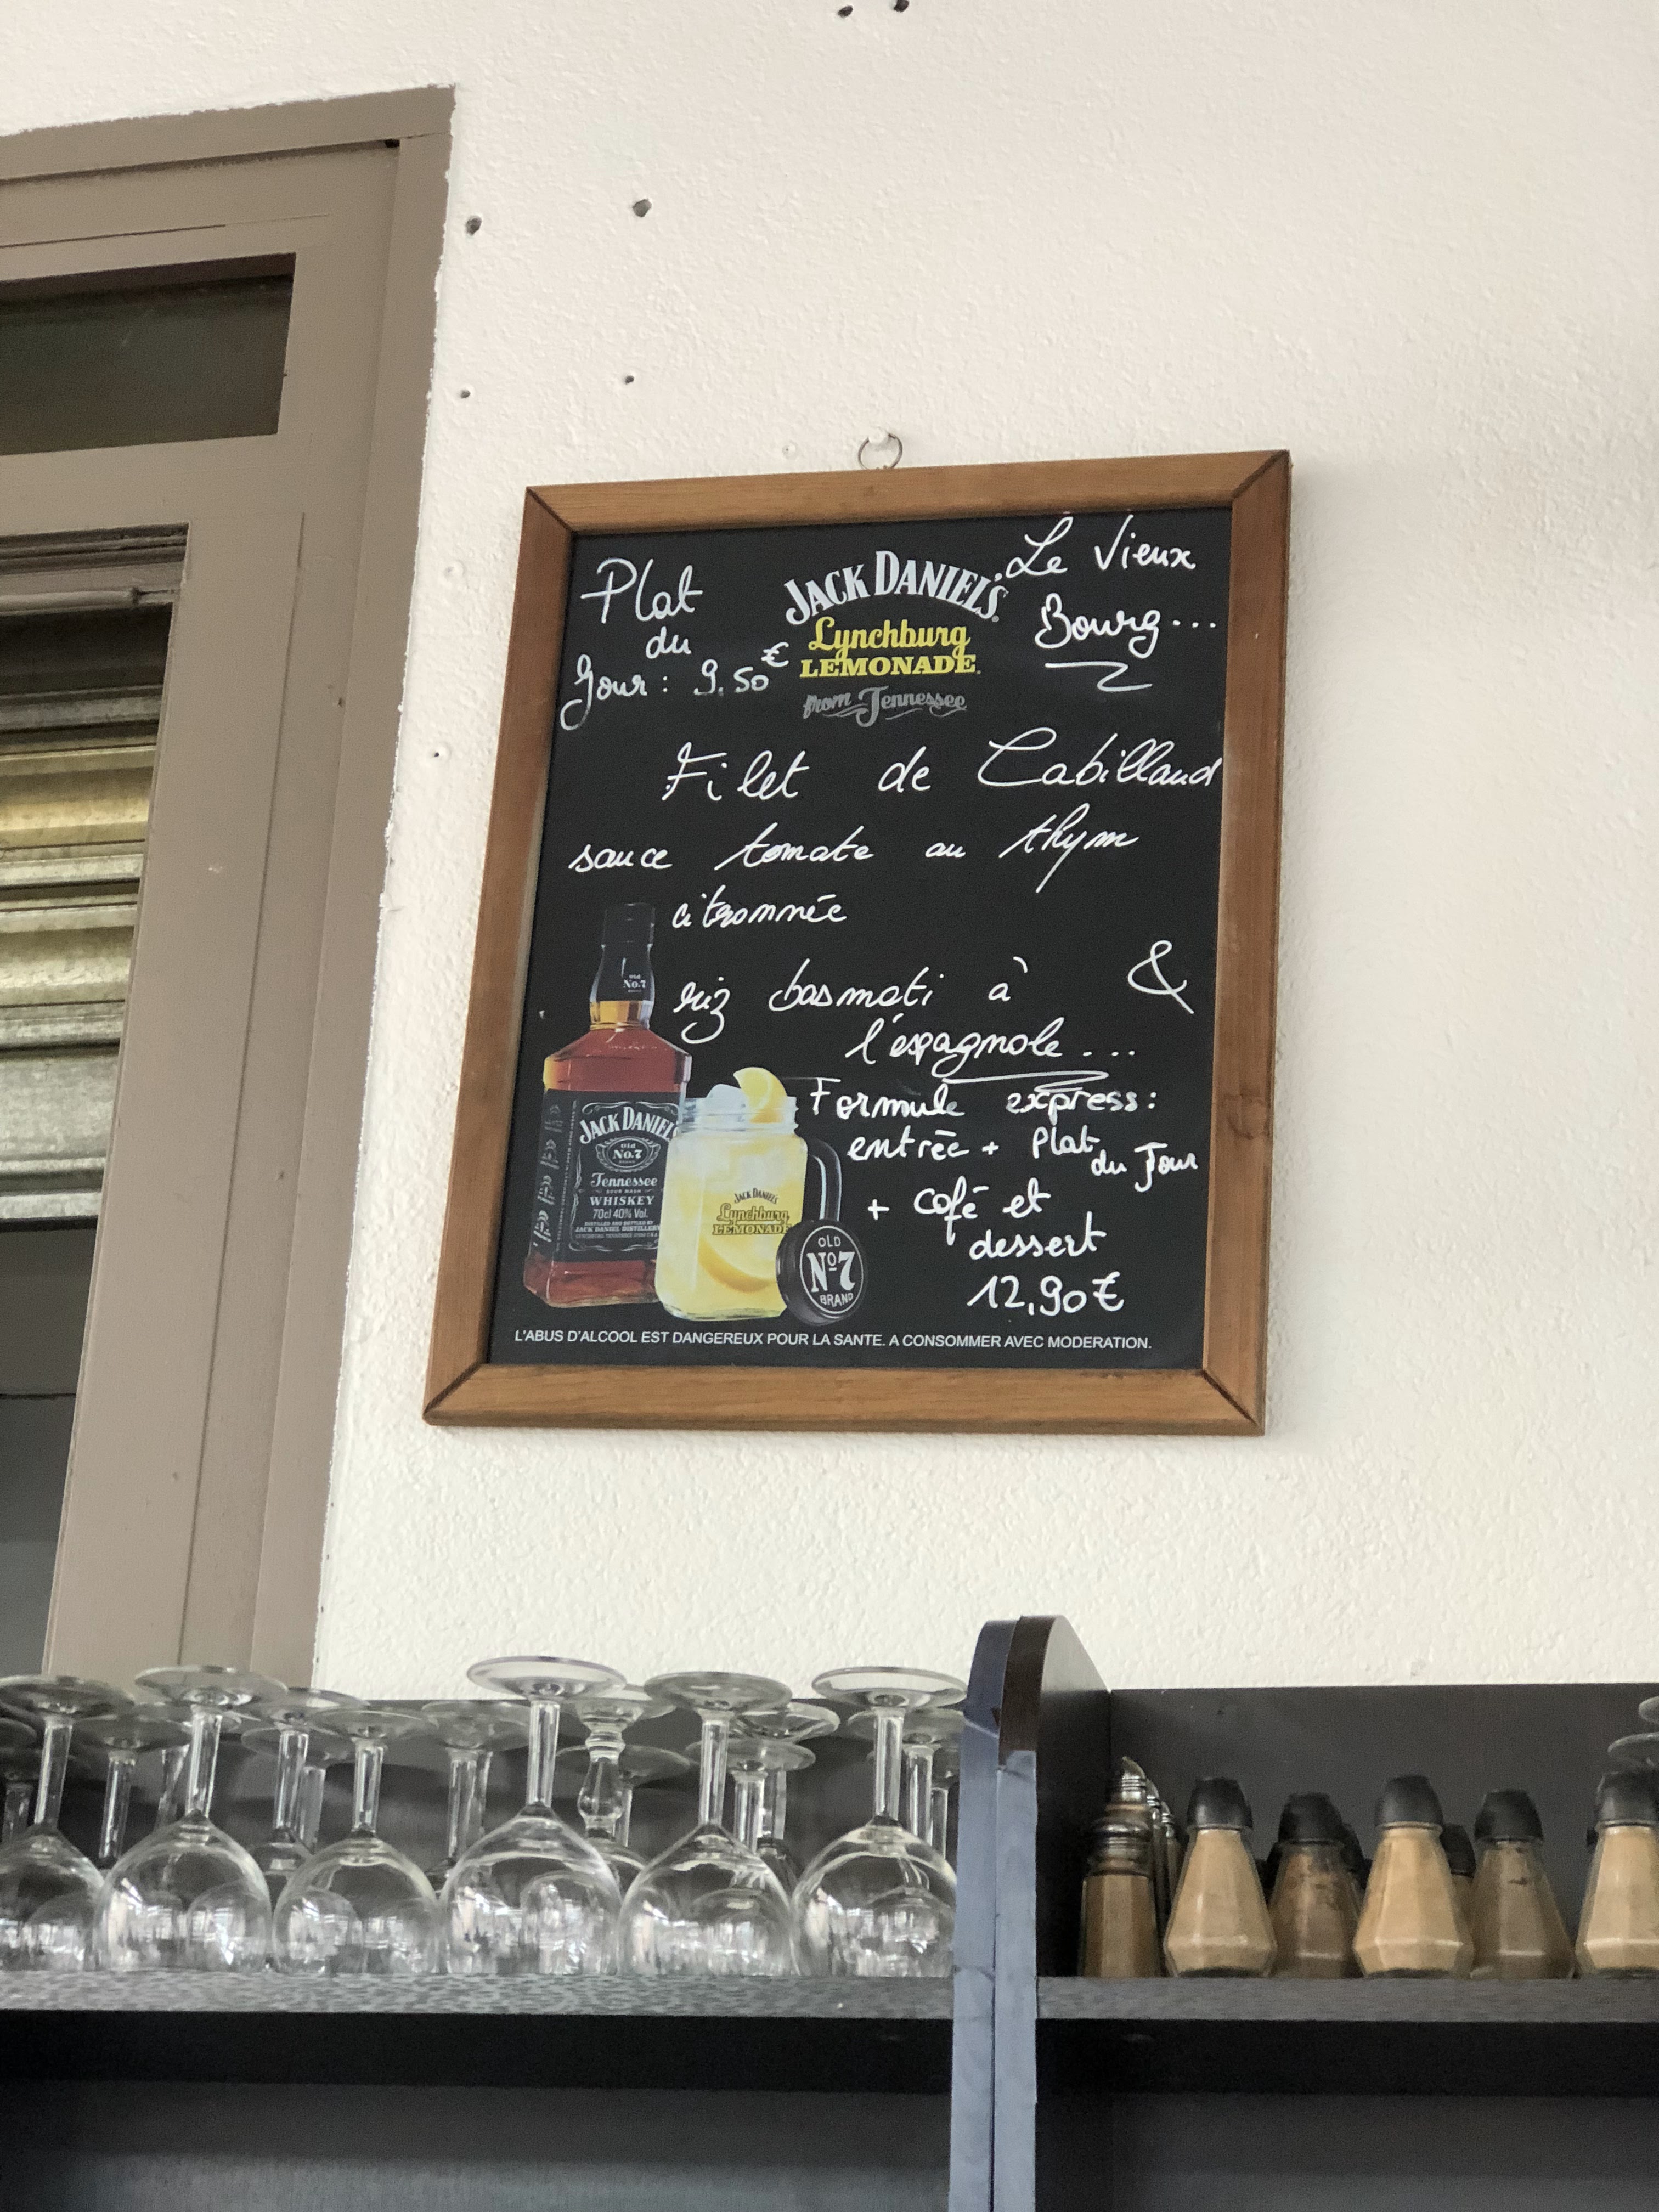 Plat
du
Jour : 9.50€
JACK DANIEL'S
Lynchburg
LEMONADE
from Tennessee
Le Vieux
Bourg...
Filet de Cabillaud
sauce tomate au thym
citronnée
&
riz basmati à
l'espagnole...
Formule express :
entrée + Plat
du Jour
+ café et
dessert
12,90€
Old
No.7
JACK DANIEL'S
Old
No.7
Tennessee
SOUR MASH
WHISKEY
70cl 40% Vol.
DISTILLED AND BOTTLED BY
JACK DANIEL DISTILLERY
JACK DANIEL'S
Lynchburg
LEMONADE
OLD
No7
BRAND
L'ABUS D'ALCOOL EST DANGEREUX POUR LA SANTE. A CONSOMMER AVEC MODERATION.